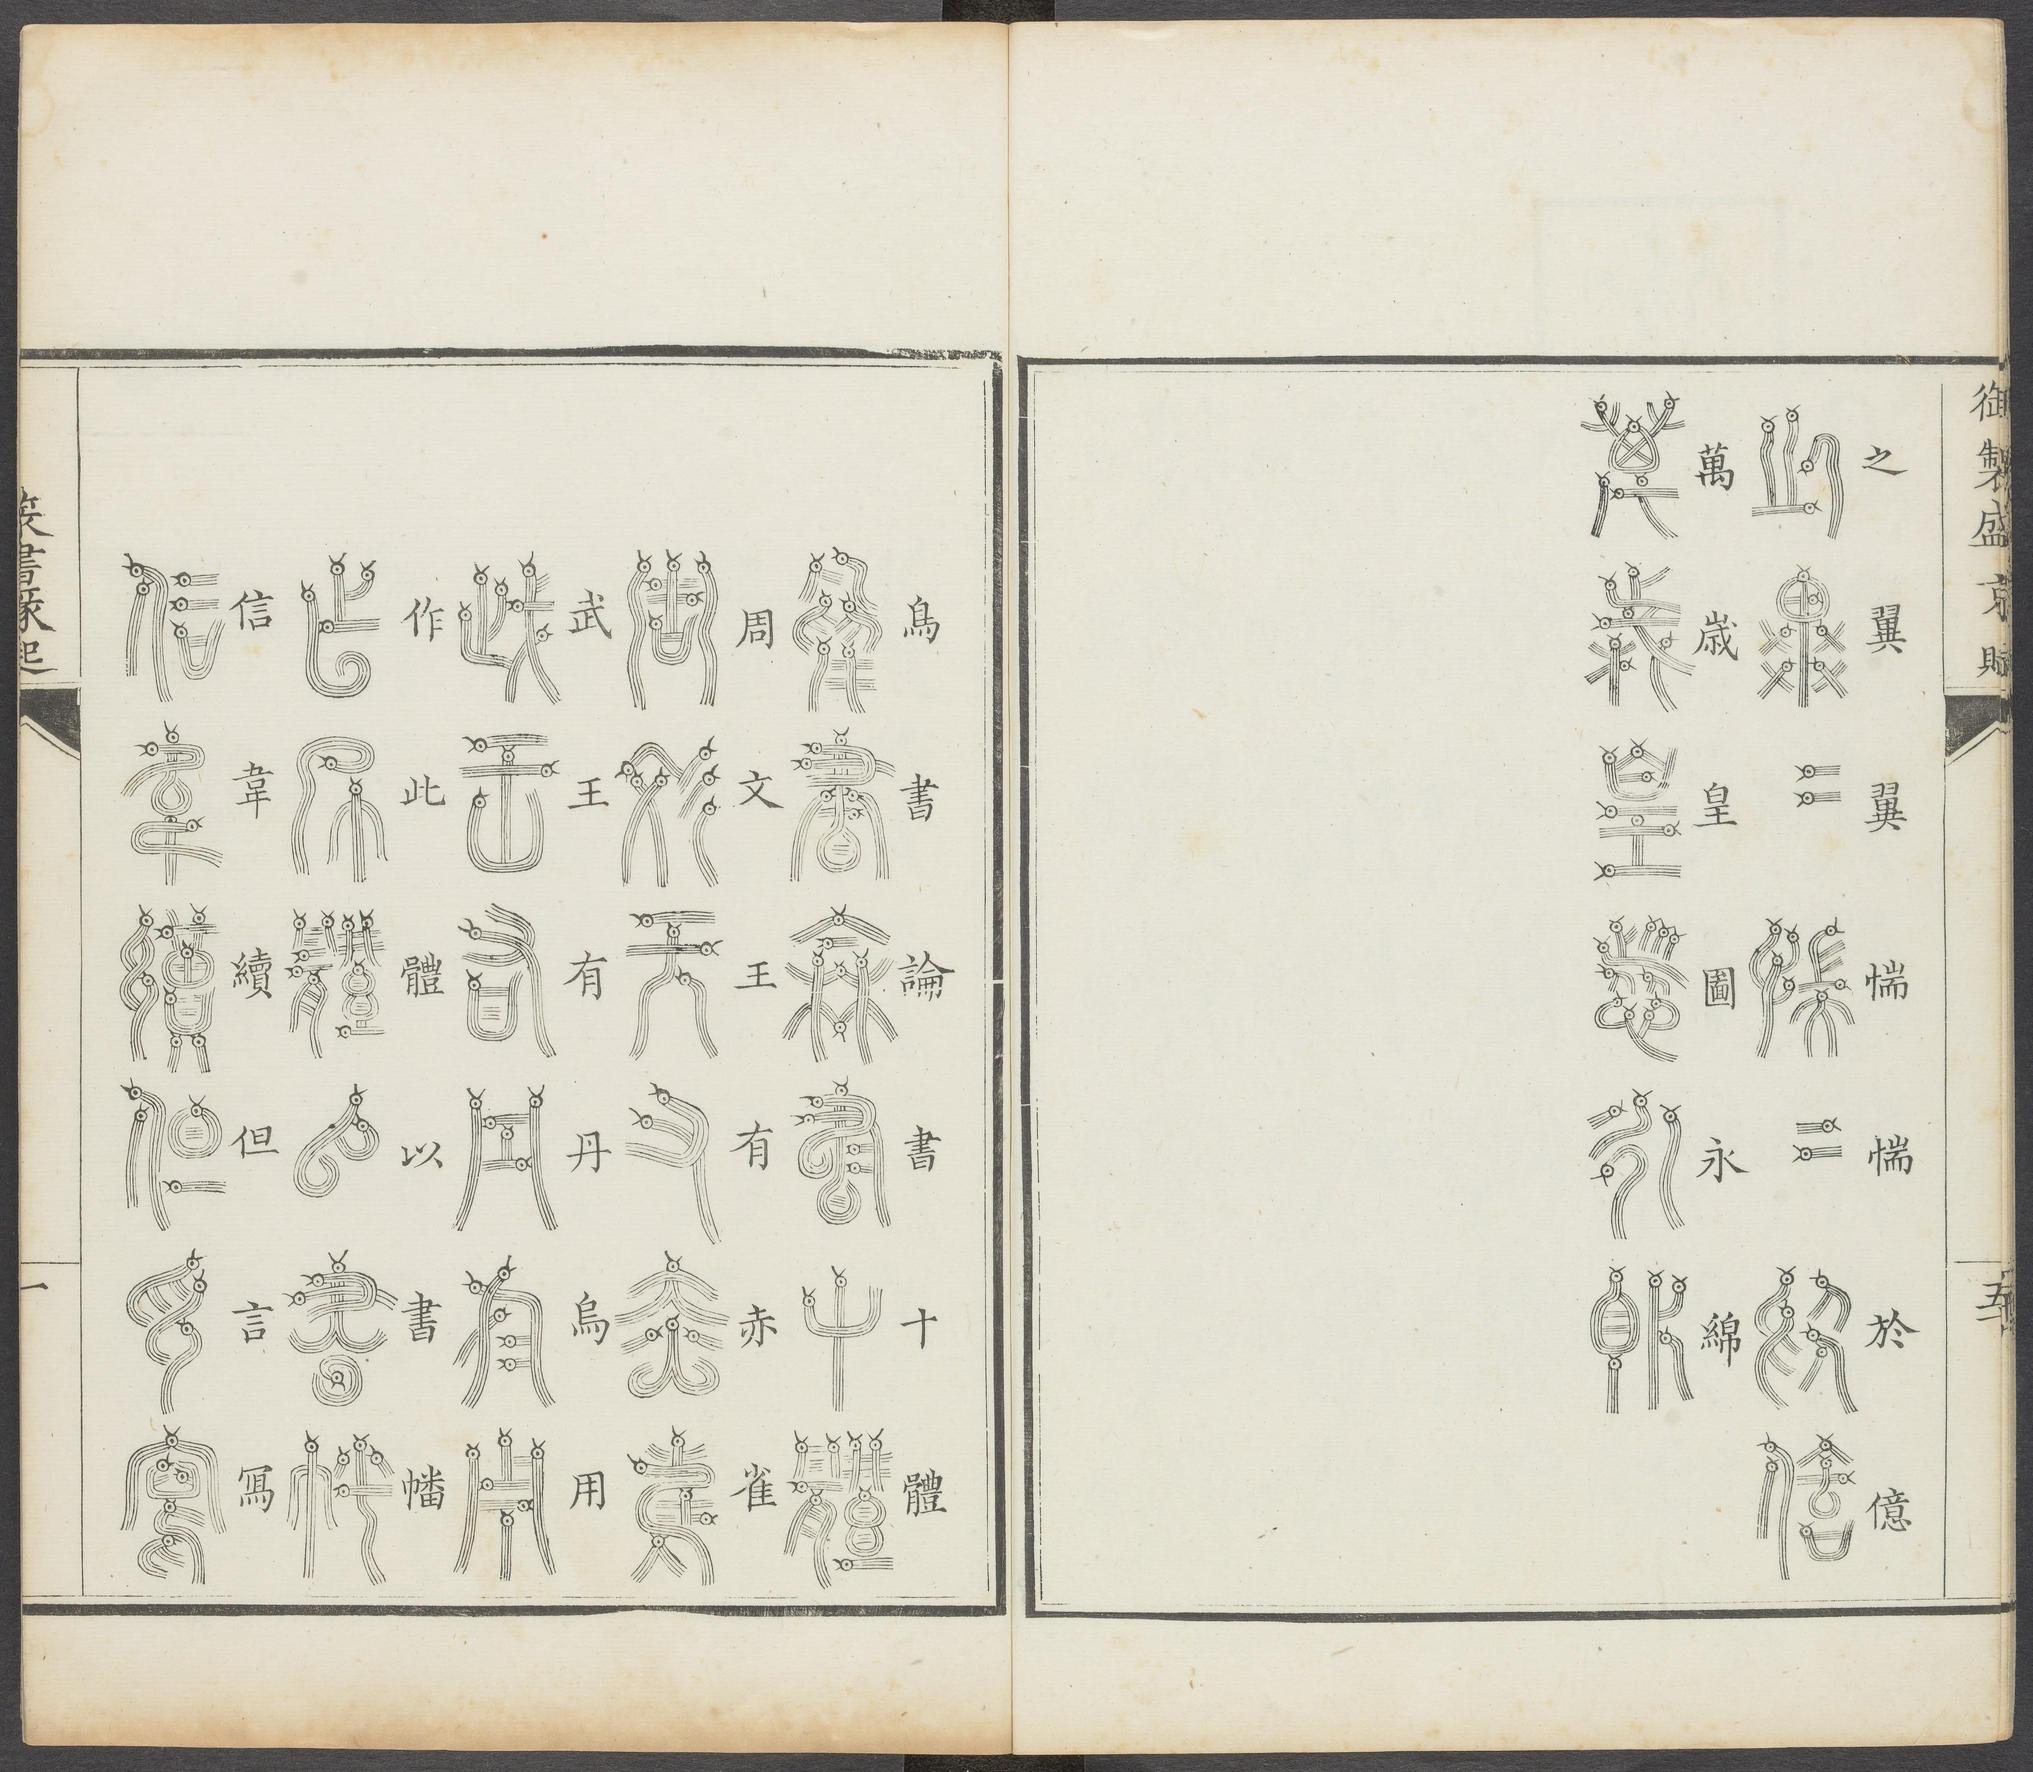 御製盛京賦
之翼翼惴惴於億
萬歳皇圖永綿
鳥書論書十體
周文王有赤雀
武王有丹烏用
作此體以書幡
信韋續但言冩
篆書緣起
一